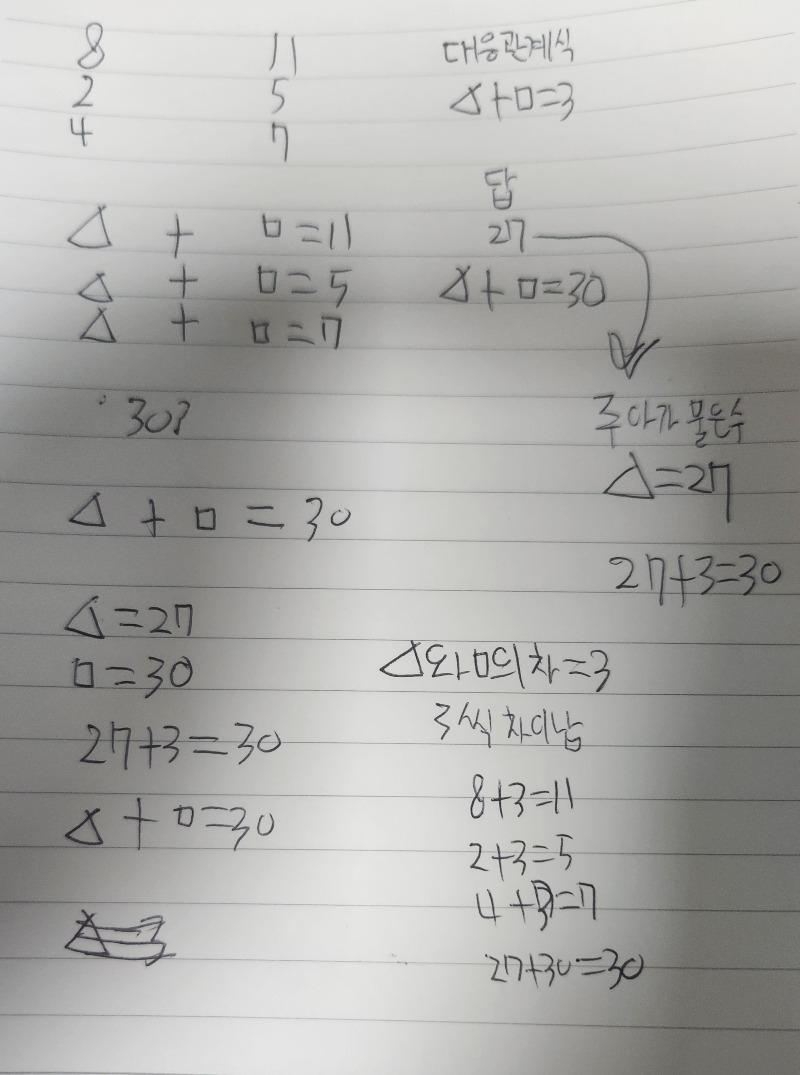 8 11
2 5
4 7
대응관계식
△+□=3
△ + □=11
△ + □=5
△ + □=7
답
27
△+□=30
30?
주아가 물은수
△=27
27+3=30
△ + □ = 30
△=27
□=30
27+3=30
△+□=30
△와□의 차=3
3씩 차이남
8+3=11
2+3=5
4+3=7
27+30=30